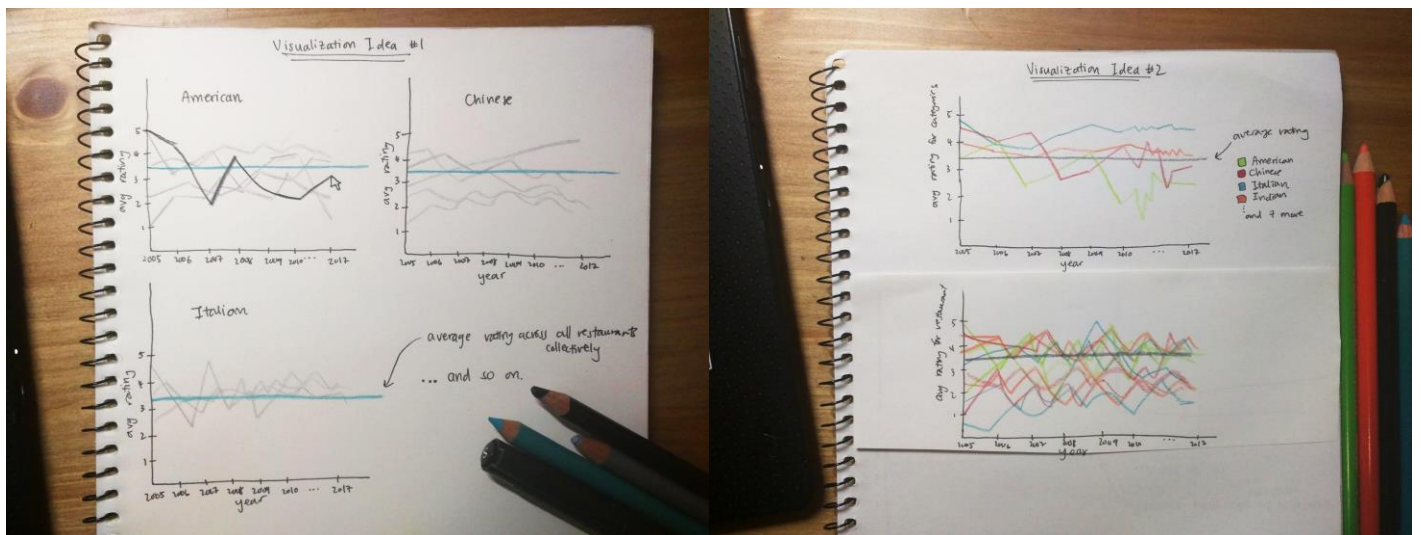 Visualization Idea #1
American
avg rating
5
4
3
2
1
2005 2006 2007 2008 2009 2010 ... 2017
Chinese
avg rating
5
4
3
2
1
2005 2006 2007 2008 2009 2010 ... 2017
year
Italian
avg rating
5
4
3
2
1
2005 2006 2007 2008 2009 2010 ... 2017
year
average rating across all restaurants
collectively
... and so on.
Visualization Idea #2
avg rating for categories
5
4
3
2
1
2005 2006 2007 2008 2009 2010 ... 2017
year
average rating
American
Chinese
Italian
Indian
and 7 more
avg rating for restaurant
5
4
3
2
1
2005 2006 2007 2008 2009 2010 ... 2017
year